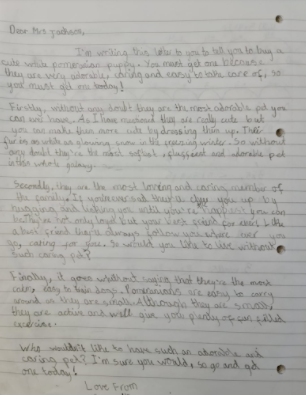 Dear Mrs Jackson,
I'm writing this letter to you to tell you to buy a
cute white pomeranian puppy. You must get one because
they are very adorable, caring and easy to take care of, so
you must get one today!
Firstly, without any doubt they are the most adorable pet you
can ever have. As I have mentioned they are really cute but
you can make them more cute by dressing them up. Their
fur is as white as glowing snow in the freezing winter. So without
any doubt they're the most softest, fluffiest and adorable pet
in the whole galaxy.
Secondly, they are the most loving and caring member of
the family. If you're sad they'll cheer you up by
hugging and licking you until you're happy! If you can
they're not only loyal but your best friend for ever! Like
a best friend they'll always follow you where ever you
go, caring for you. So would you like to live without
such caring pet?
Finally, it goes without saying that they're the most
calm, easy to train dogs. Pomeranians are easy to carry
around as they are small. Although they are small,
they are active and will give you plenty of fun filled
exercise.
Who wouldn't like to have such an adorable and
caring pet? I'm sure you would, so go and get
one today!
Love From